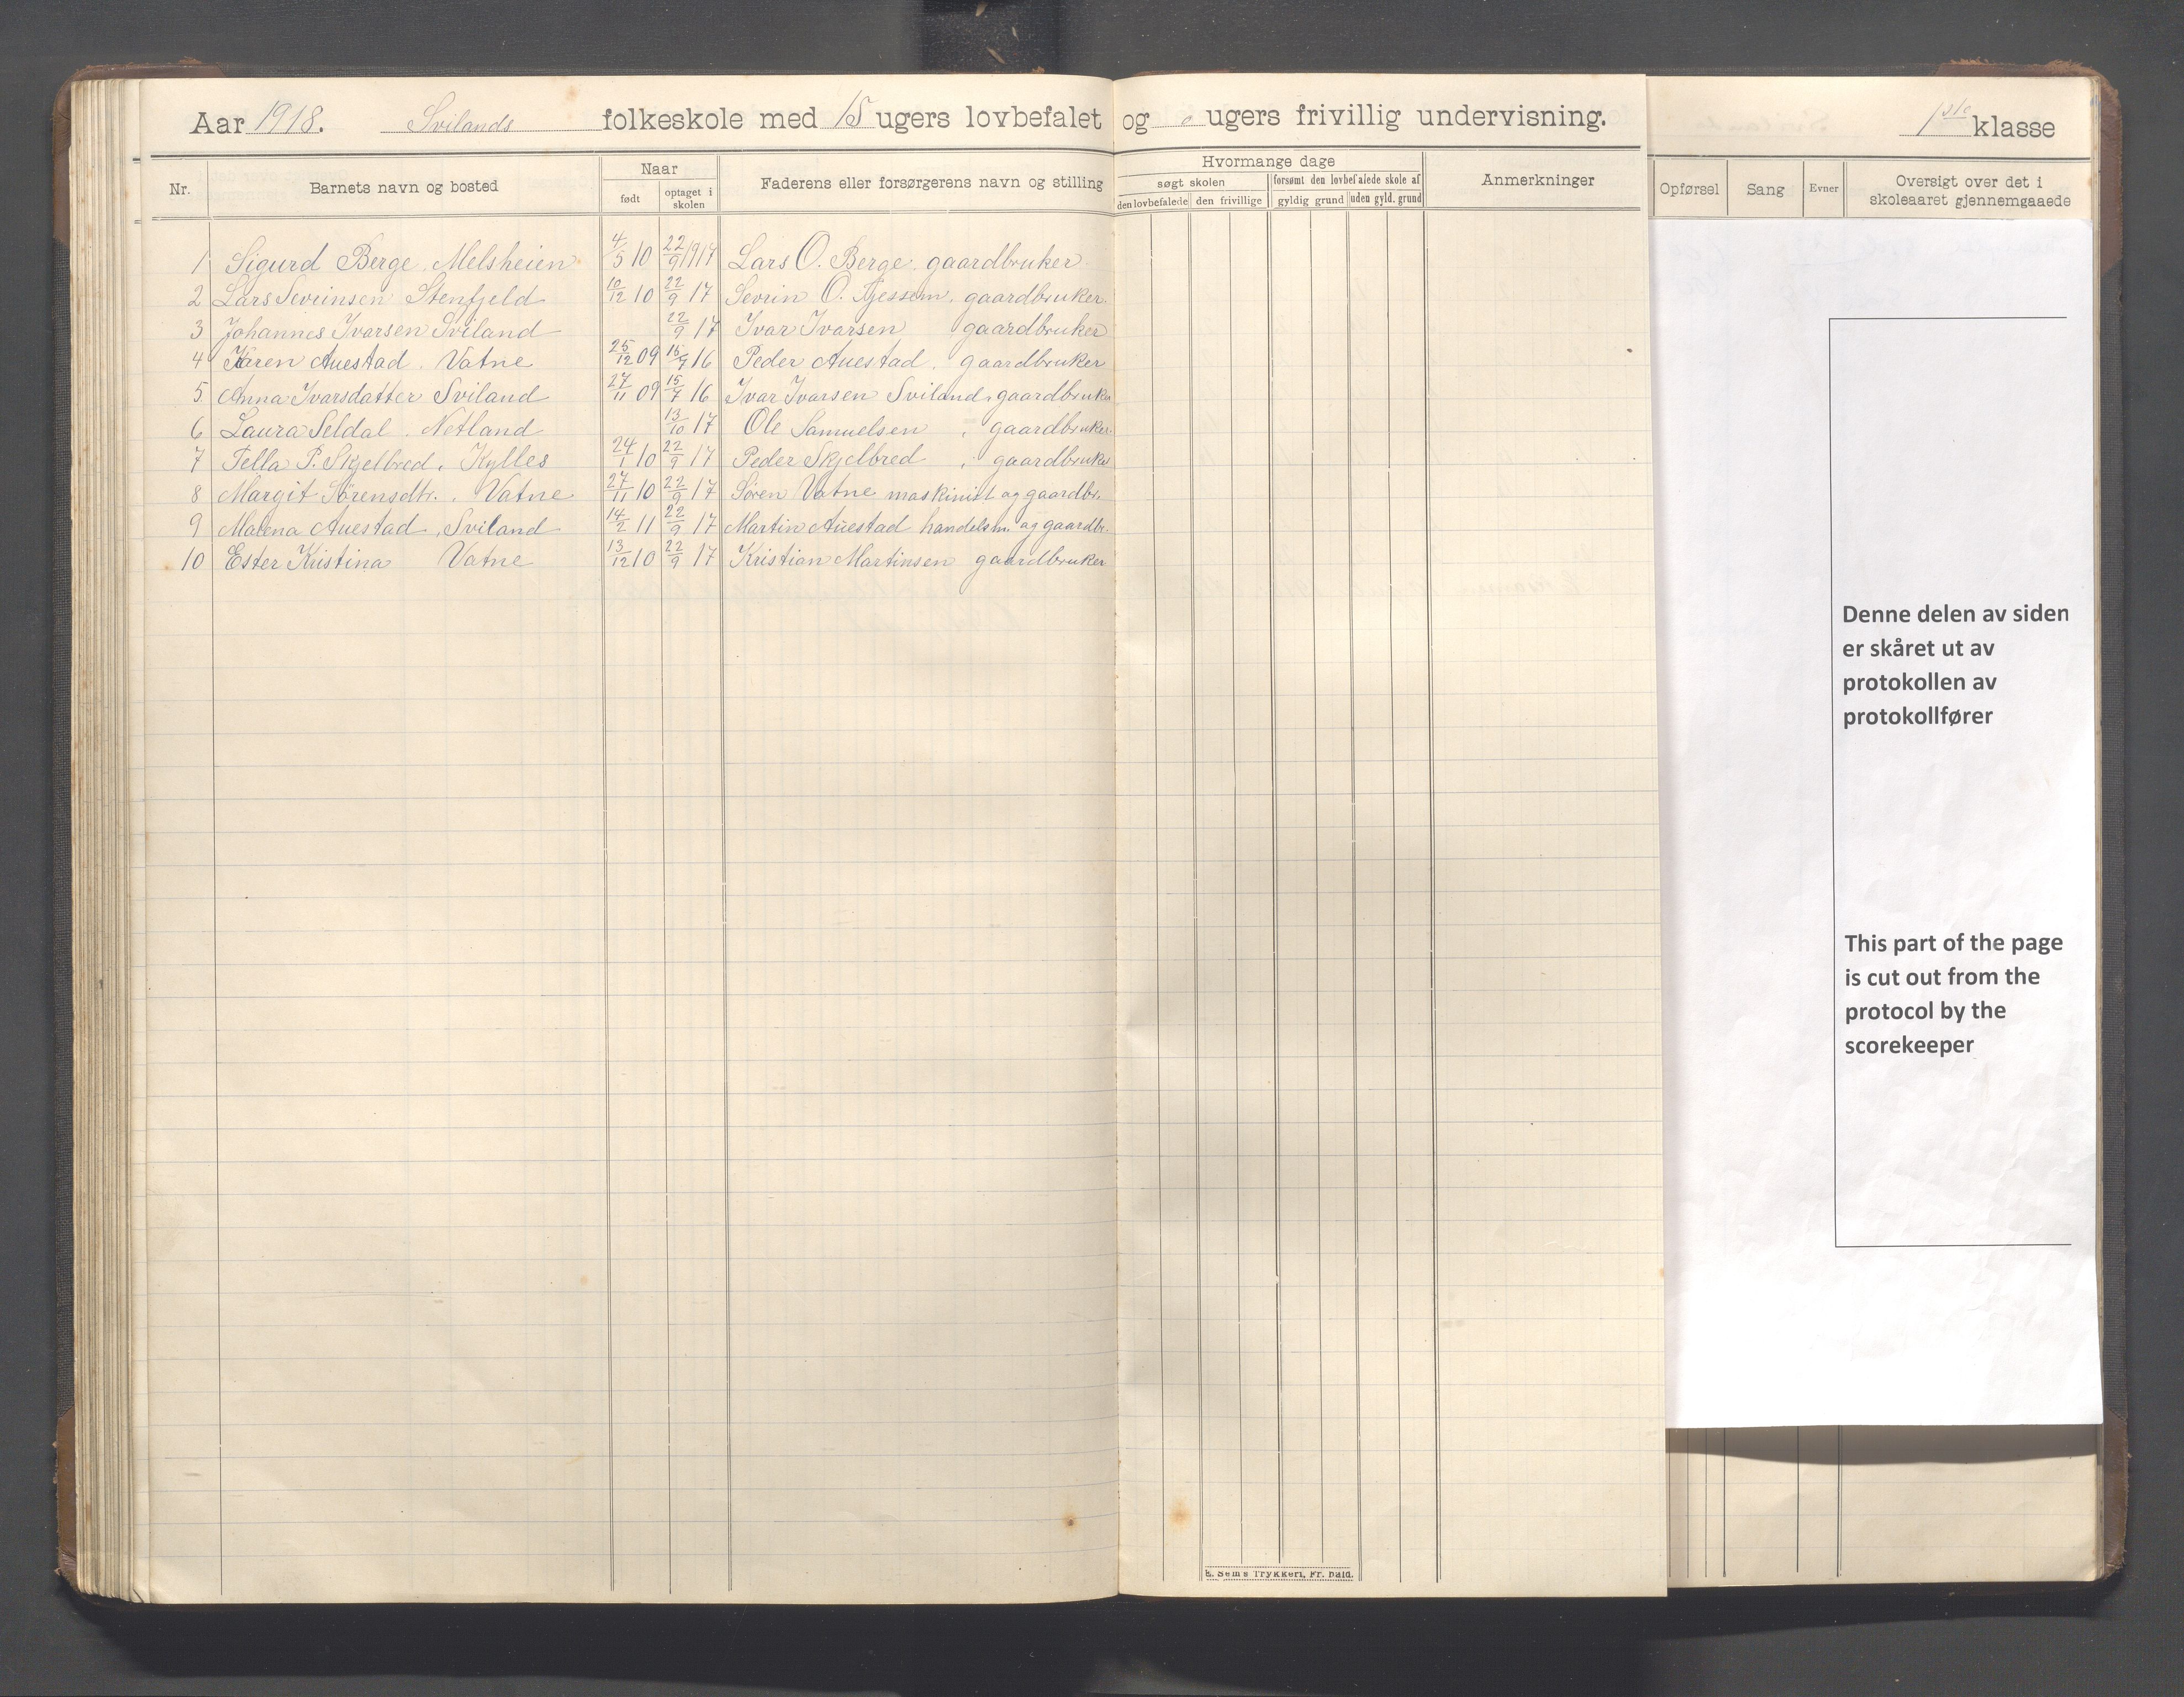 Aar 1918. Svilands folkeskole med 15 ugers lovbefalet og ugers frivillig undervisning. 1ste klasse
Nr. Barnets navn og bosted Naar Faderens eller forsørgerens navn og stilling Hvormange dage Anmerkninger Opførsel Sang Evner Oversigt over det i skoleaaret gjennemgaaede
født optaget i skolen søgt skolen forsømt den lovbefalede skole af
den lovbefalede den frivillige gyldig grund uden gyld. grund
1 Sigurd Berge. Melsheien 4/5 10 22/9 1917 Lars O. Berge. gaardbruker
2 Lars Sevrinsen Stenfjeld 10/12 10 22/9 17 Sevrin O. gaardbruker.
3 Johannes Ivarsen Sviland 22/9 17 Ivar Ivarsen gaardbruker
4 Karen Auestad. Vatne 25/12 09 15/7 16 Peder Auestad. gaardbruker
5. Anna Ivarsdatter Sviland 27/11 09 15/7 16 Ivar Ivarsen Sviland, gaardbruker
6 Laura Seldal. Netland 13/10 17 Ole Samuelsen, gaardbruker.
7 Tella P. Skjelbred, Kylles 24/1 10 22/9 17 Peder Skjelbred, gaardbruker
8 Margit Sørensdtr.. Vatne 27/11 10 22/9 17 Søren Vatne maskinist og gaardbr.
9 Malena Auestad, Sviland 14/2 11 22/9 17 Martin Auestad handelsm. og gaardbr.
10 Ester Kristina Vatne 13/12 10 22/9 17 Kristian Martinsen gaardbruker
Denne delen av siden
er skåret ut av
protokollen av
protokollfører
This part of the page
is cut out from the
protocol by the
scorekeeper
E. Sem's Trykkeri, Fr.hald.